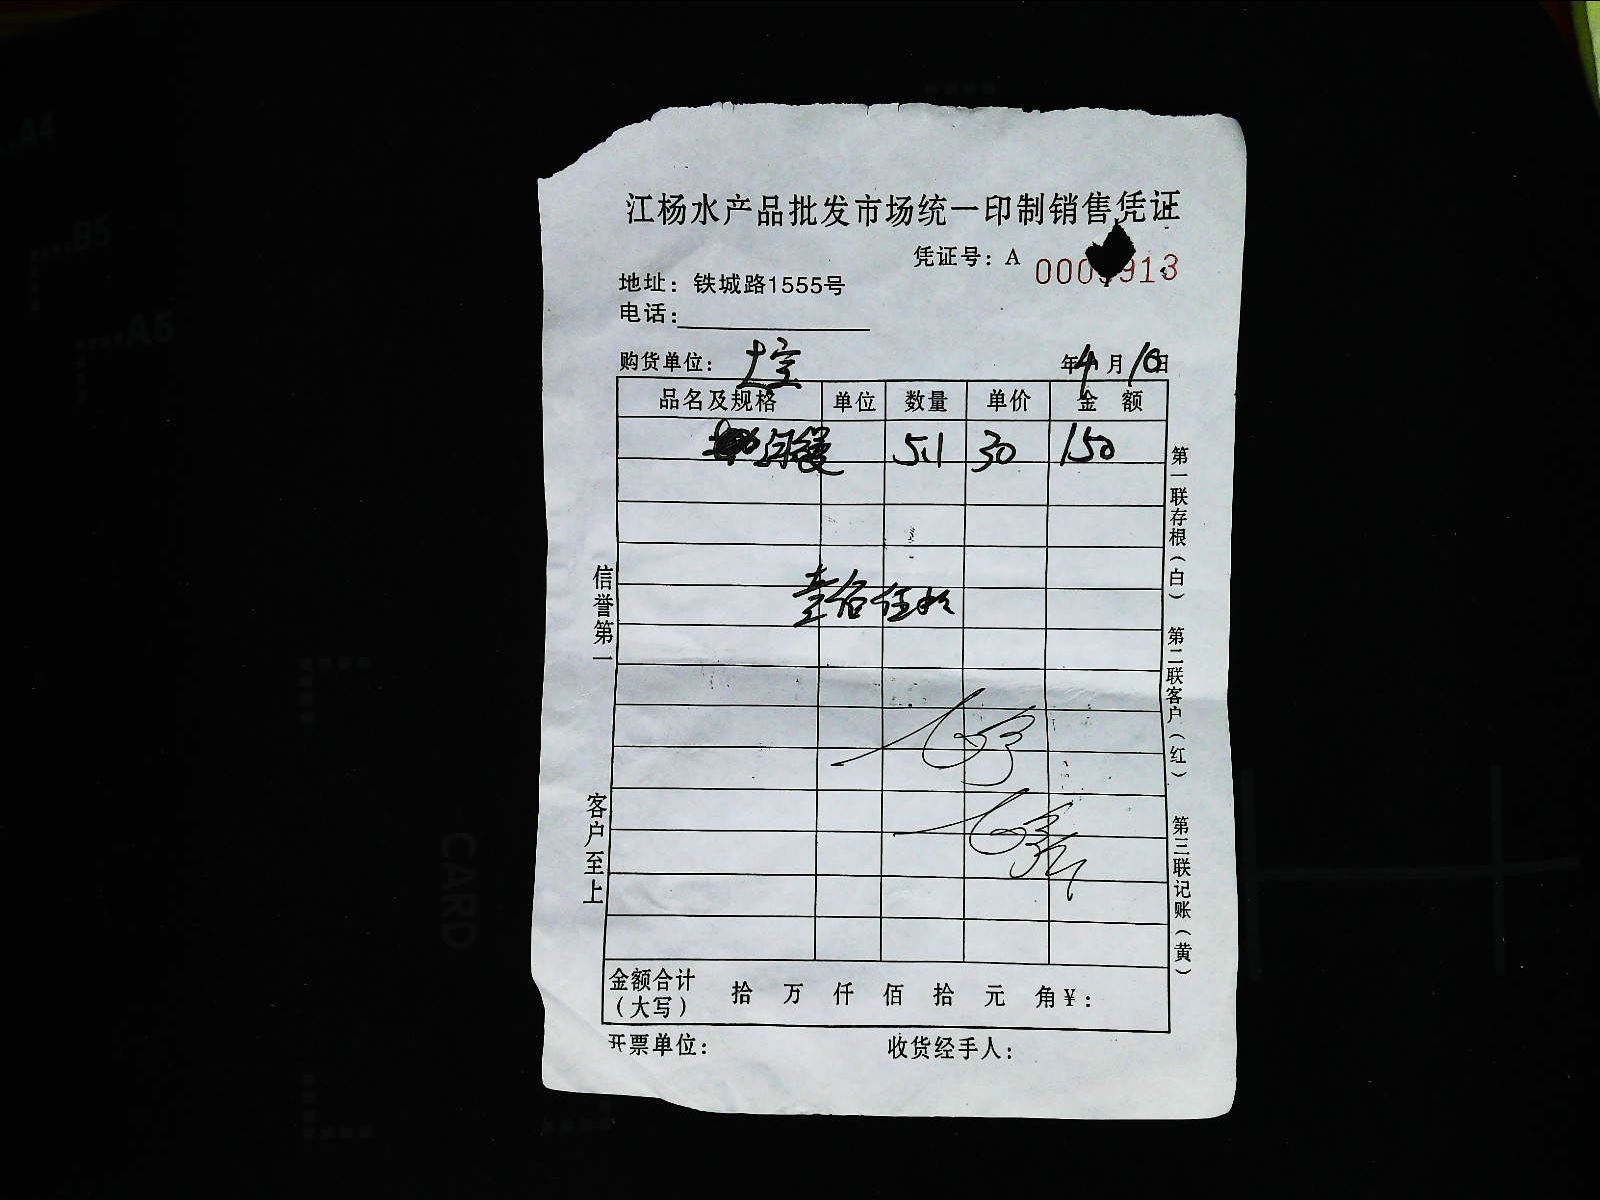 江杨水产品批发市场统一印制销售凭证
凭证号：A
地址：铁城路1555号
电话：
购货单位： 年4月10日
品名及规格 单位 数量 单价 金额
河鳗 5.1 30 150
信誉第一
客户至上
第一联存根（白）
第二联客户（红）
第三联记账（黄）
金额合计（大写） 拾 万 仟 佰 拾 元 角 ¥：
开票单位： 收货经手人：
A4
B5
A5
CARD